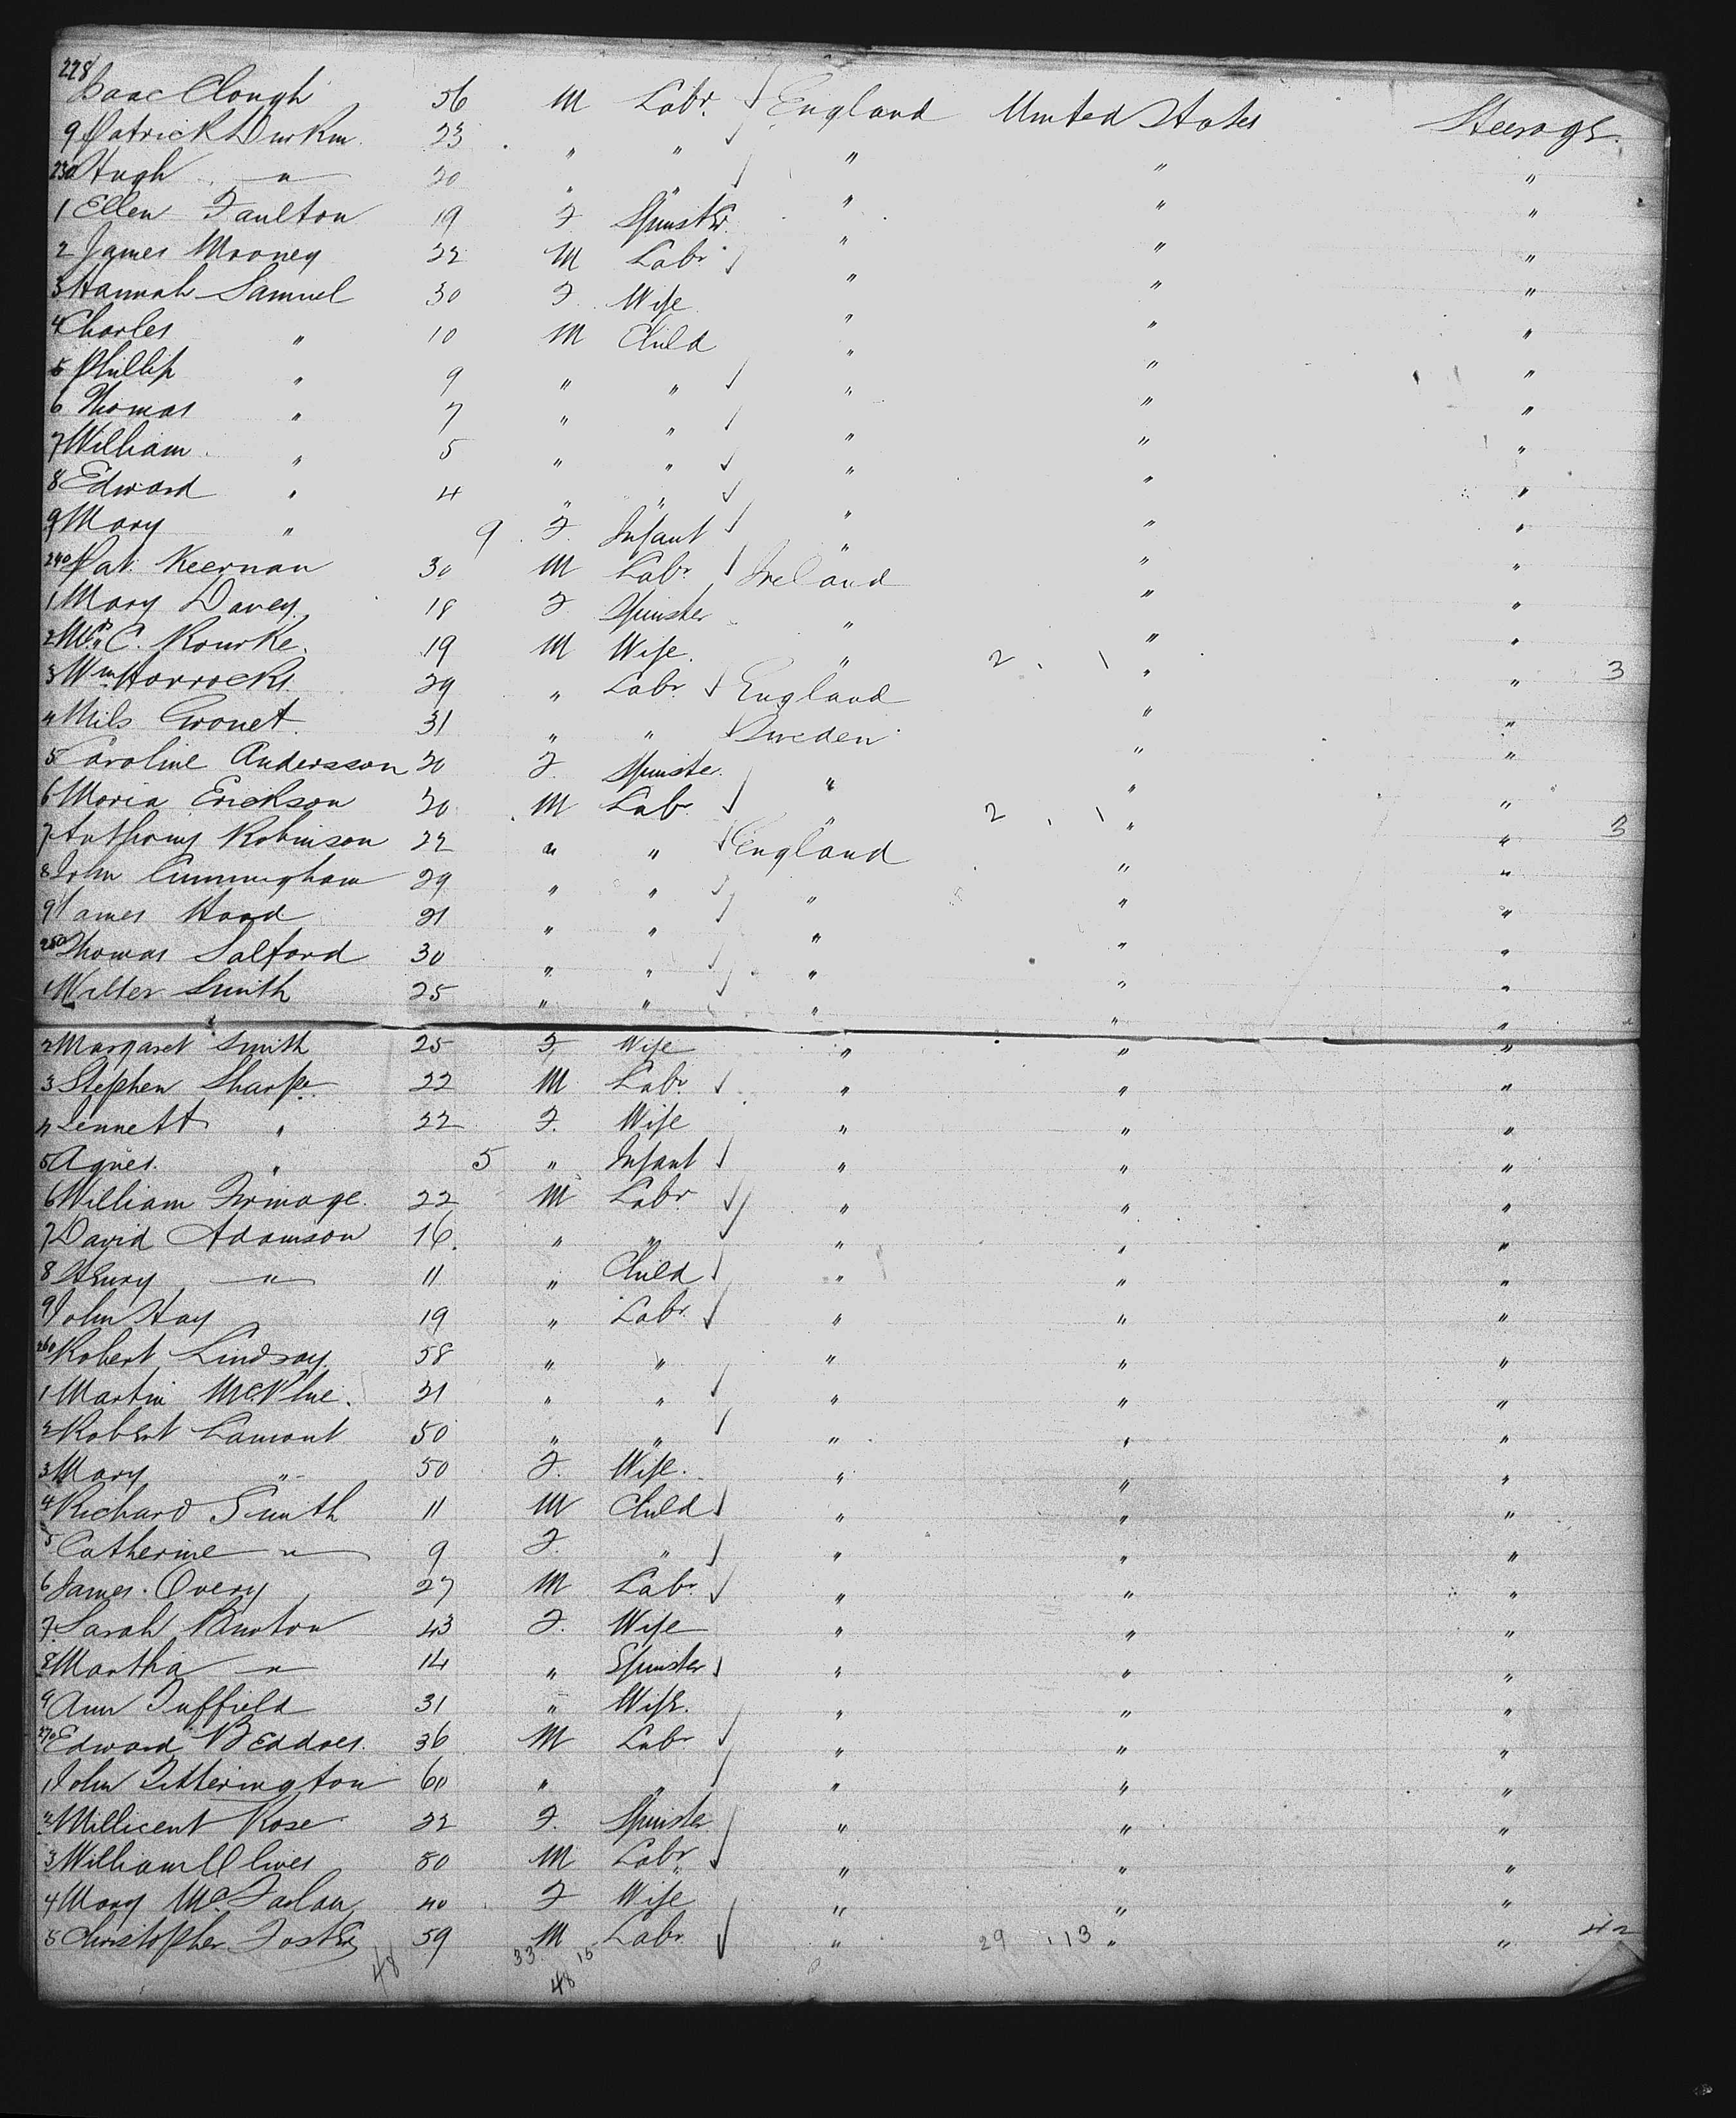 228 Isaac Clough 56 M Labr. England United States Steerage
9 Patrick Durkin 23 " " " " "
230 Hugh " 20 " " " " "
1 Ellen Faulton 19 F Spinster " " "
2 James Mooney 22 M Labr " " "
3 Hannah Samuel 30 F. Wife " " "
4 Charles " 10 M Child " " "
5 Phillip " 9 " " " " "
6 Thomas " 7 " " " " "
7 William " 5 " " " " "
8 Edward " 4 " " " " "
9 Mary " 9 F. Infant " " "
240 Pat. Keernan 30 M Labr Ireland " "
1 Mary Davey 18 F. Spinster " " "
2 Mrs C. Rourke. 19 M Wife. " 2 . 1 " " 3
3 Wm Horrocks 29 " Labr England " "
4 Nils Gronet 31 " " Sweden " "
5 Caroline Andersson 20 F. Spinster. " " "
6 Moria Erickson 20 M Labr. " 2 . 1 " " 3
7 Anthony Robinson 22 " " England " "
8 John Cunningham 29 " " " " "
9 James Hood 21 " " " " "
250 Thomas Salford 30 " " " " "
1 Wilter Smith 25 " " " " "
2 Margaret Smith 25 F Wife " " "
3 Stephen Sharpe 22 M Labr " " "
4 Jennett " 22 F. Wife " " "
5 Agnes. " 5 " Infant " " "
6 William Firmage. 22 M Labr " " "
7 David Adamson 16. " " " " "
8 Henry " 11 " Child " " "
9 John Hay 19 " Labr. " " "
260 Robert Lindsay 58 " " " " "
1 Martin McPhie. 21 " " " " "
2 Robert Lamont 50 " " " " "
3 Mary " 50 F. Wife. " " "
4 Richard Smith 11 M Child " " "
5 Catherine " 9 F. " " " "
6 James. Overy 27 M Labr. " " "
7 Sarah Burton 43 F. Wife " " "
8 Martha " 14 " Spinster " " "
9 Ann Tuffield 31 " Wife. " " "
270 Edward Beddoes. 36 M Labr " " "
1 John Titterington 60 " " " " "
2 Millicent Rose 22 F. Spinster. " " "
3 William Olives 50 M Labr " " "
4 Mary Mc.Farlan 40 F Wife " " "
5 Christopher Foster 59 M Labr. " 29 . 13 " " 42
48 33 15
48